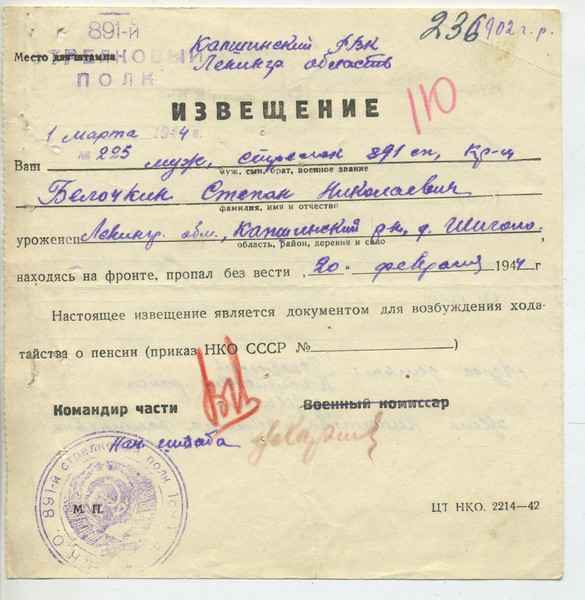 891-й
СТРЕЛКОВЫЙ
ПОЛК
Место для штампа
Капшинский РВК
Ленингр. области
236
1902 г. р.
110
ИЗВЕЩЕНИЕ
1 марта 1944 г.
№ 225
Ваш муж, стрелок 891 сп, кр-ц
муж, сын, брат, военное звание
Белочкин Степан Николаевич
фамилия, имя и отчество
уроженец Ленингр. обл., Капшинский р-н, д. Шигола
область, район, деревня и село
находясь на фронте, пропал без вести „20“ февраля 1944 г
Настоящее извещение является документом для возбуждения хода-
тайства о пенсии (приказ НКО СССР №)
Командир части
Военный комиссар
Нач. штаба
М. П.
891-й стрелковый полк
Н.К.О.
ЦТ НКО. 2214—42